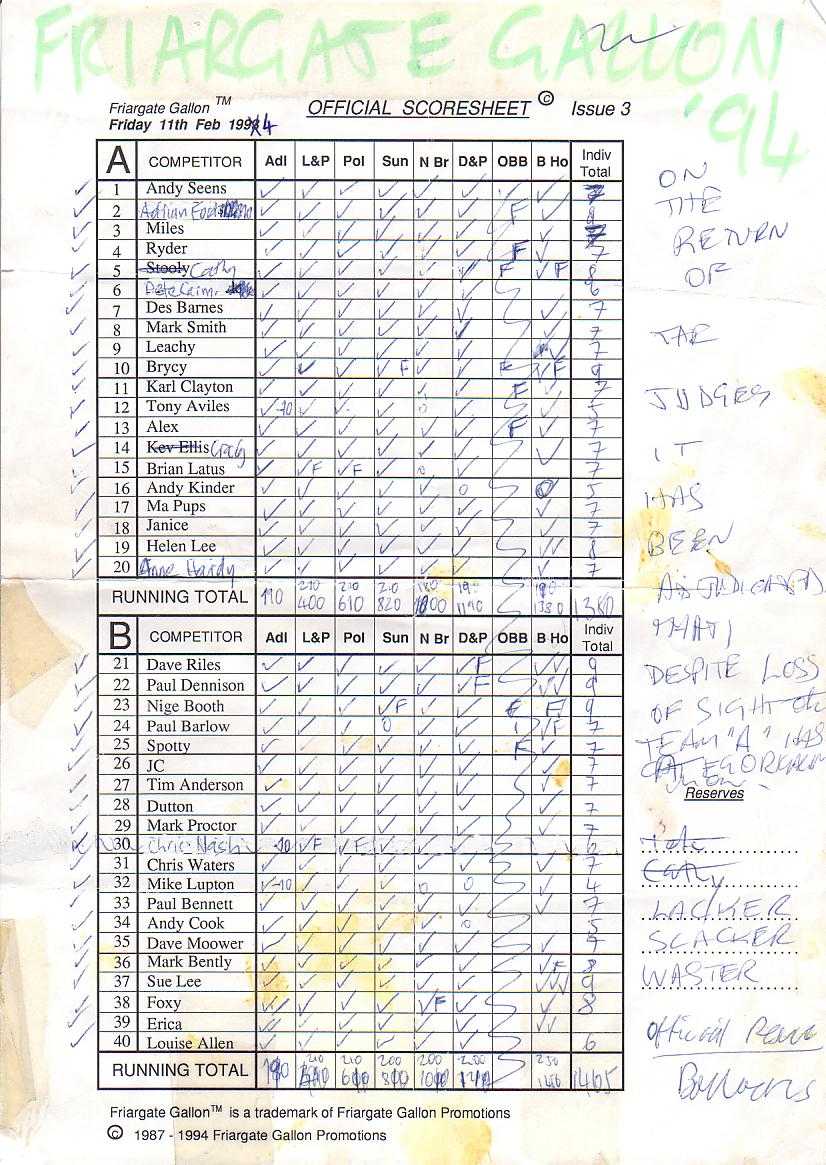 FRIARGATE GALLON
'94
Friargate Gallon™ OFFICIAL SCORESHEET © Issue 3
Friday 11th Feb 1994
A COMPETITOR Adl L&P Pol Sun N Br D&P OBB B Ho Indiv Total
1 Andy Seens ✓ ✓ ✓ ✓ ✓ ✓ ✓
2 Adrian F ✓ ✓ ✓ ✓ ✓ ✓ F ✓ 8
3 Miles ✓ ✓ ✓ ✓ ✓ ✓ ✓ 7
4 Ryder ✓ ✓ ✓ ✓ ✓ ✓ F ✓ 7
5 Stooly Cathy ✓ ✓ ✓ ✓ ✓ ✓ F ✓F 8
6 Pete ✓ ✓ ✓ ✓ ✓ ✓ 6
7 Des Barnes ✓ ✓ ✓ ✓ ✓ ✓ ✓ 7
8 Mark Smith ✓ ✓ ✓ ✓ ✓ ✓ ✓ 7
9 Leachy ✓ ✓ ✓ ✓ ✓ ✓ ✓ 7
10 Brycy ✓ ✓ ✓ ✓ F ✓ ✓ F ✓F 9
11 Karl Clayton ✓ ✓ ✓ ✓ ✓ ✓ F ✓ 7
12 Tony Aviles ✓-10 ✓ ✓ ✓ 0 ✓ ✓ 5
13 Alex ✓ ✓ ✓ ✓ ✓ ✓ F ✓ 7
14 Kev Ellis Craig ✓ ✓ ✓ ✓ ✓ ✓ ✓ 7
15 Brian Latus ✓ ✓F ✓F ✓ 0 ✓ 7
16 Andy Kinder ✓ ✓ ✓ ✓ ✓ 0 0 5
17 Ma Pups ✓ ✓ ✓ ✓ ✓ ✓ ✓ 7
18 Janice ✓ ✓ ✓ ✓ ✓ ✓ ✓ 7
19 Helen Lee ✓ ✓ ✓ ✓ ✓ ✓ ✓✓ 8
20 Anne Hardy ✓ ✓ ✓ ✓ ✓ ✓ ✓ 7
RUNNING TOTAL 190 210 400 210 610 210 820 180 1000 190 1190 190 1380 1380
B COMPETITOR Adl L&P Pol Sun N Br D&P OBB B Ho Indiv Total
21 Dave Riles ✓ ✓ ✓ ✓ ✓ ✓F ✓✓ 9
22 Paul Dennison ✓ ✓ ✓ ✓ ✓ ✓F ✓✓ 9
23 Nige Booth ✓ ✓ ✓ ✓F ✓ ✓ F 9
24 Paul Barlow ✓ ✓ ✓ 0 ✓ ✓ ✓F 7
25 Spotty ✓ ✓ ✓ ✓ ✓ F ✓ 7
26 JC ✓ ✓ ✓ ✓ ✓ ✓ ✓ 7
27 Tim Anderson ✓ ✓ ✓ ✓ ✓ ✓ ✓ 7
28 Dutton ✓ ✓ ✓ ✓ ✓ ✓ ✓ 7
29 Mark Proctor ✓ ✓ ✓ ✓ ✓ ✓ ✓ 7
30 Chris Nash -10 ✓F ✓F ✓ ✓ ✓ 6
31 Chris Waters ✓ ✓ ✓ ✓ ✓ ✓ ✓ 7
32 Mike Lupton ✓-10 ✓ ✓ ✓ 0 0 ✓ 4
33 Paul Bennett ✓ ✓ ✓ ✓ ✓ ✓ ✓ 7
34 Andy Cook ✓ ✓ ✓ ✓ ✓ 0 5
35 Dave Moower ✓ ✓ ✓ ✓ ✓ ✓ ✓ 7
36 Mark Bently ✓ ✓ ✓ ✓ ✓ ✓ ✓F 8
37 Sue Lee ✓ ✓ ✓ ✓ ✓ ✓ ✓✓✓ 9
38 Foxy ✓ ✓ ✓ ✓ ✓F ✓ ✓ 8
39 Erica ✓ ✓ ✓ ✓ ✓ ✓ ✓✓
40 Louise Allen ✓ ✓ ✓ ✓ ✓ ✓ 6
RUNNING TOTAL 210 210 200 200 200 1465
Friargate Gallon™ is a trademark of Friargate Gallon Promotions
© 1987 - 1994 Friargate Gallon Promotions
ON
THE
RETURN
OF
TAR
JUDGES
IT
HAS
BEEN
THAT,
DESPITE LOSS
OF SIGHT OF
TEAM "A" HAS
Reserves
Pete
Cathy
LACKER
SLACKER
WASTER
Official
Bollocks